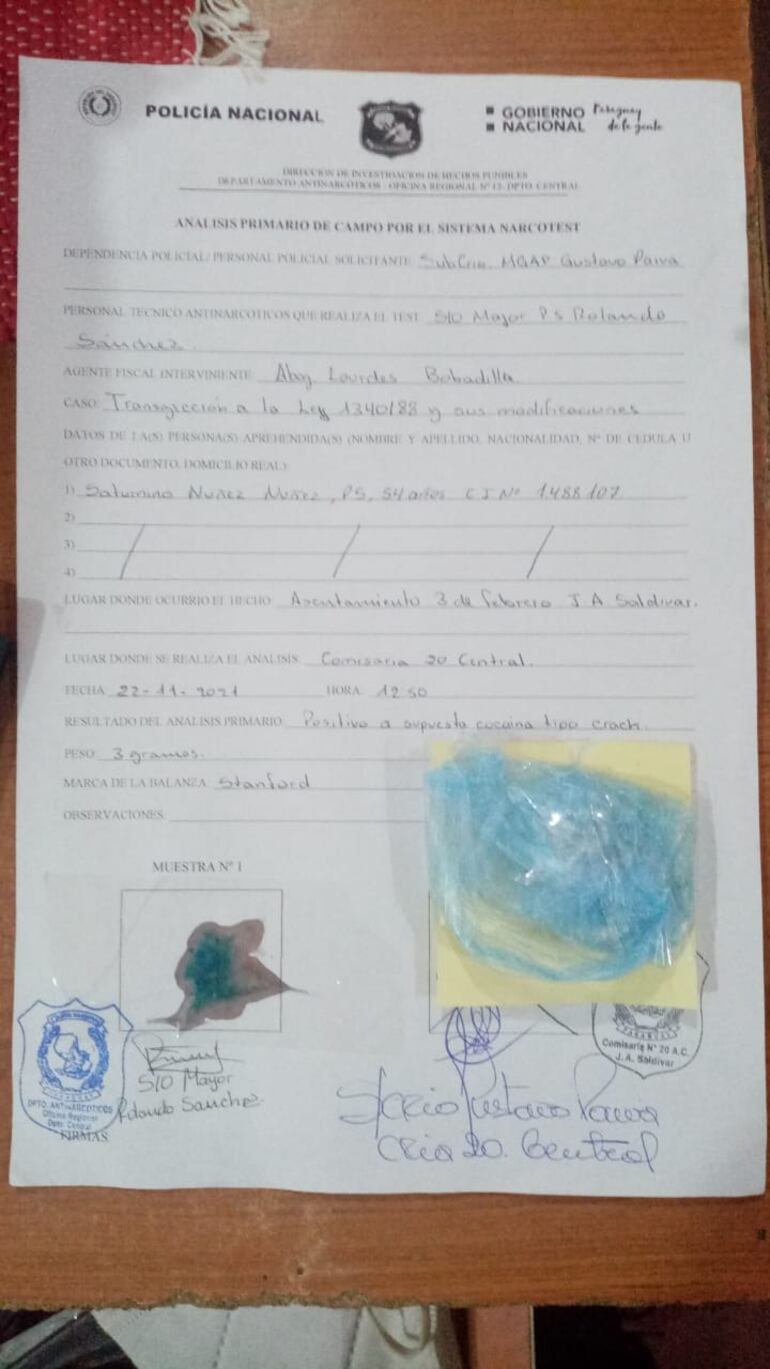 POLICÍA NACIONAL
GOBIERNO NACIONAL
Paraguay de la gente
DIRECCIÓN DE INVESTIGACIÓN DE HECHOS PUNIBLES
DEPARTAMENTO ANTINARCÓTICOS - OFICINA REGIONAL Nº 12- DPTO. CENTRAL
ANALISIS PRIMARIO DE CAMPO POR EL SISTEMA NARCOTEST
DEPENDENCIA POLICIAL/ PERSONAL POLICIAL SOLICITANTE: SubCrio. MGAP Gustavo Paiva
PERSONAL TECNICO ANTINARCOTICOS QUE REALIZA EL TEST: S/O Mayor PS Rolando
Sánchez.
AGENTE FISCAL INTERVINIENTE: Abog. Lourdes Bobadilla.
CASO: Transgicción a la Ley 1340/88 y sus modificaciones
DATOS DE LA(S) PERSONA(S) APREHENDIDA(S) (NOMBRE Y APELLIDO, NACIONALIDAD, Nº DE CEDULA U
OTRO DOCUMENTO, DOMICILIO REAL):
1) Saturnino Nuñez Nuñez, PS, 54 años C I Nº 1.488.107
2)
3)
4)
LUGAR DONDE OCURRIO EL HECHO: Asentamiento 3 de febrero J. A Saldivar.
LUGAR DONDE SE REALIZA EL ANALISIS: Comisaria 20 Central.
FECHA: 22-11-2021 HORA: 12:50
RESULTADO DEL ANALISIS PRIMARIO: Positivo a supuesta cocaina tipo crack.
PESO: 3 gramos.
MARCA DE LA BALANZA: Stanford
OBSERVACIONES:
MUESTRA Nº 1
DPTO. ANTINARCÓTICOS
Oficina Regional
Dpto. Central
S/O Mayor
Rolando Sanchez
FIRMAS
PARAGUAY
Comisaría Nº 20 A.C.
J.A. Saldívar
Gustavo Paiva
Cria 20. Central